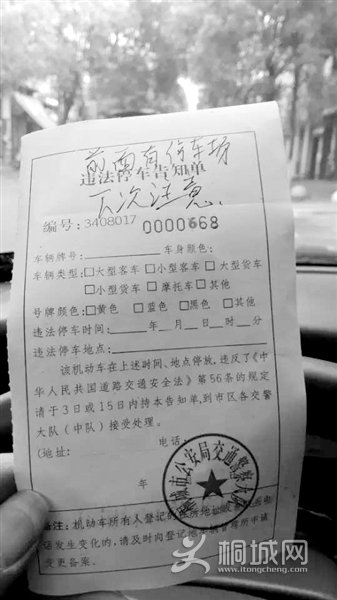 前面有停车场
违法停车告知单
下次注意
编号:3408017 0000668
车辆牌号: 车身颜色:
车辆类型:□大型客车 □小型客车 □大型货车
□小型货车 □摩托车 □其他
号牌颜色:□黄色 □蓝色 □黑色 □其他
违法停车时间: 年 月 日 时 分
违法停车地点:
该机动车在上述时间、地点停放,违反了《中
华人民共国道路交通安全法》第56条的规定
请于3日或15日内持本告知单,到市区各交警
大队(中队)接受处理。
(地址: 电话:
年
市公安局交通警察大
备注:机动车所有人登记的住所地址
话发生变化的,请及时向登记地车辆管理所申请
变更备案。
桐城网
www.itongcheng.com